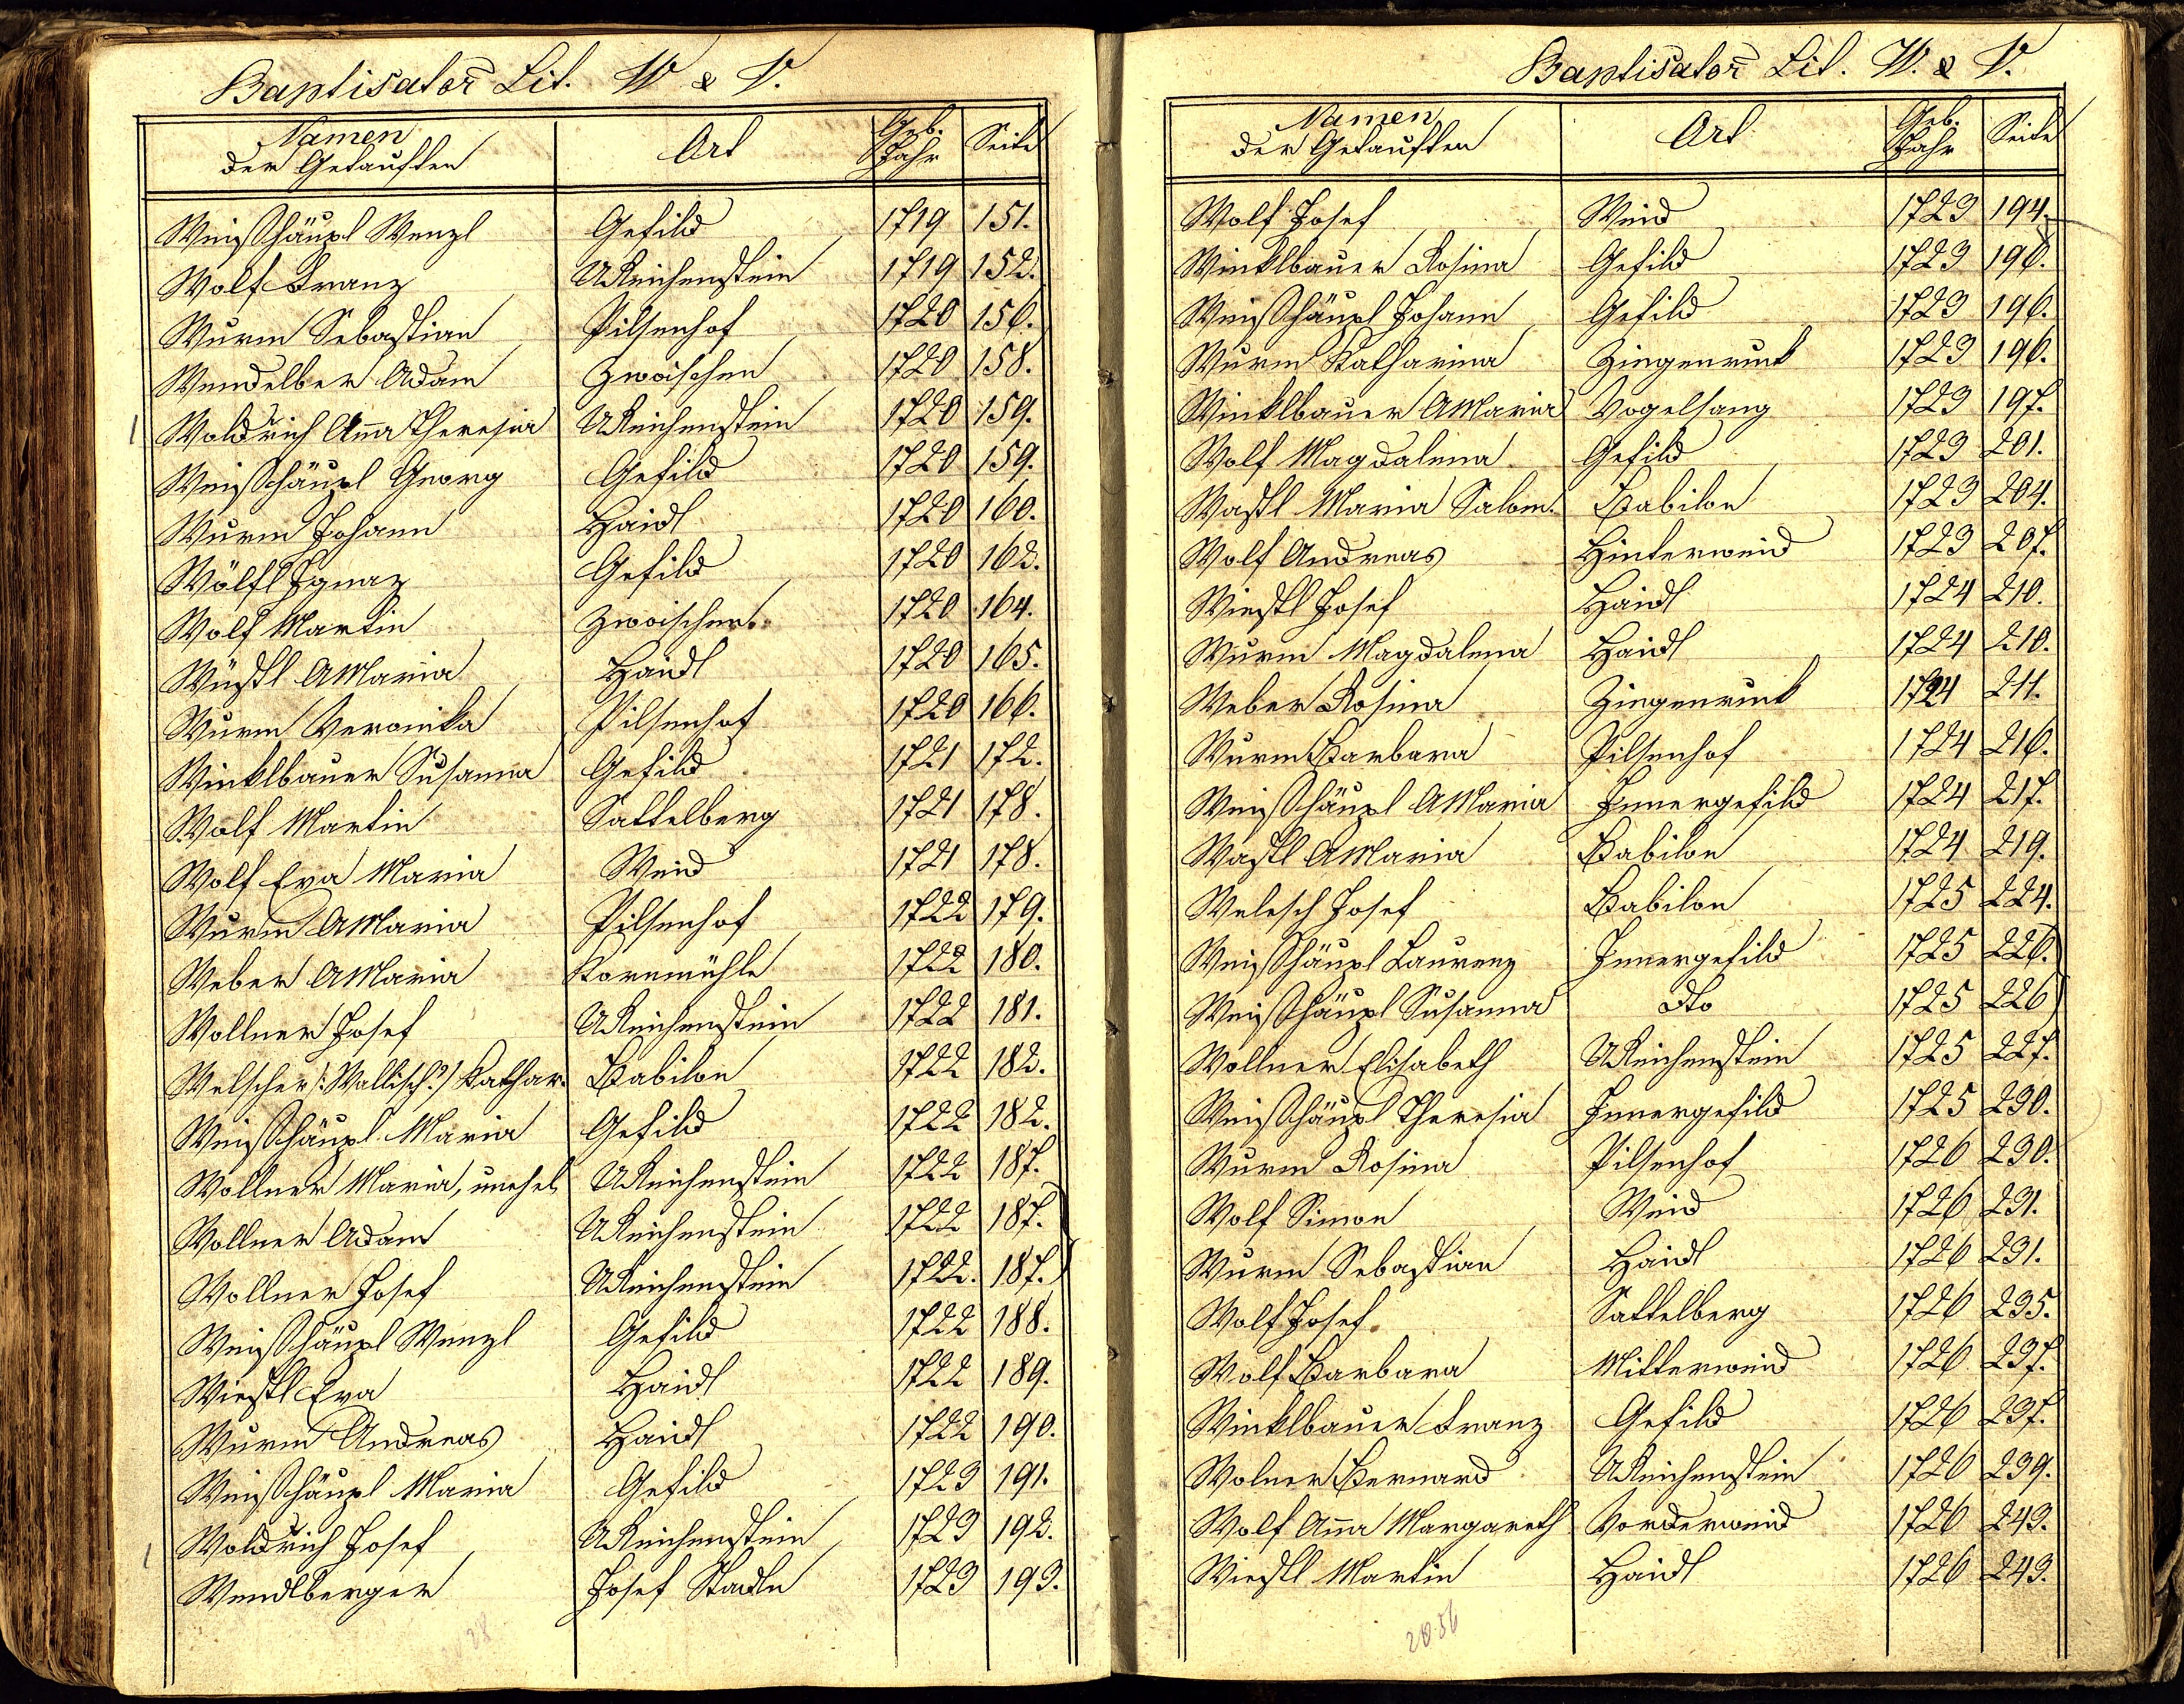 Baptisator̄ Lit. W & V.
Namen der Getauften | Ort | Geb. Jahr | Seite
Weishäupl Wenzl | Gefild | 1719 | 151.
Wolf Franz | UReichenstein | 1719 | 152.
Wurm Sebastian | Pilsenhof | 1720 | 156.
Wendelber Adam | Zwoischen | 1720 | 158.
Woldrich Aña Theresia | UReichenstein | 1720 | 159.
Weishäupl Georg | Gefild | 1720 | 159.
Wurm Johann | Haidl | 1720 | 160.
Wölfl Ignaz | Gefild | 1720 | 162.
Wolf Martin | Zwoischen | 1720 | 164.
Wüstl AMaria | Haidl | 1720 | 165.
Wurm Veronika | Pilsenhof | 1720 | 166.
Winklbauer Susanna | Gefild | 1721 | 172.
Wolf Martin | Sattelberg | 1721 | 178.
Wolf Eva Maria | Weid | 1721 | 178.
Wurm AMaria | Pilsenhof | 1722 | 179.
Weber AMaria | Kornmühle | 1722 | 180.
Wollner Josef | UReichenstein | 1722 | 181.
Welscher /: Wallisch?/ Kathar. | Babilon | 1722 | 182.
Weishäupl Maria | Gefild | 1722 | 182.
Wollner Maria, unehel | UReichenstein | 1722 | 187.
Wollner Adam | UReichenstein | 1722 | 187.
Wollner Josef | UReichenstein | 1722. | 187.
Weishäupl Wenzl | Gefild | 1722 | 188.
Wiestl Eva | Haidl | 1722 | 189.
Wurm Andreas | Haidl | 1722 | 190.
Weishäupl Maria | Gefild | 1723 | 191.
Woldrich Josef | UReichenstein | 1723 | 192.
Wendlberger | Josef Stadln | 1723 | 193.
28
Baptisator̄ Lit. W. & V.
Namen der Getauften | Ort | Geb. Jahr | Seite
Wolf Josef | Weid | 1723 | 194.
Winklbauer Rosina | Gefild | 1723 | 196.
Weishäupl Johann | Gefild | 1723 | 196.
Wurm Katharina | Ziegenruk | 1723 | 196.
Winklbauer AMaria | Vogelsang | 1723 | 197.
Wolf Magdalena | Gefild | 1723 | 201.
Wastl Maria Salom. | Babilon | 1723 | 204.
Wolf Andreas | Hinterweid | 1723 | 207.
Wiestl Josef | Haidl | 1724 | 210.
Wurm Magdalena | Haidl | 1724 | 210.
Weber Rosina | Ziegenruk | 1724 | 211.
Wurm Barbara | Pilsenhof | 1724 | 216.
Weishäupl AMaria | Innergefild | 1724 | 217.
Wastl AMaria | Babilon | 1724 | 219.
Welesch Josef | Babilon | 1725 | 224.
Weishäupl Laurenz | Innergefild | 1725 | 226.
Weishäupl Susanna | dto | 1725 | 226
Wollner Elisabeth | UReichenstein | 1725 | 227.
Weishäupl Theresia | Innergefild | 1725 | 230.
Wurm Rosina | Pilsenhof | 1726 | 230.
Wolf Simon | Weid | 1726 | 231.
Wurm Sebastian | Haidl | 1726 | 231.
Wolf Josef | Sattelberg | 1726 | 235.
Wolf Barbara | Mitterweid | 1726 | 237.
Winklbauer Franz | Gefild | 1726 | 237.
Wolner Bernard | UReichenstein | 1726 | 239.
Wolf Aña Margareth | Vorderweid | 1726 | 243.
Wiestl Martin | Haidl | 1726 | 243.
28 56